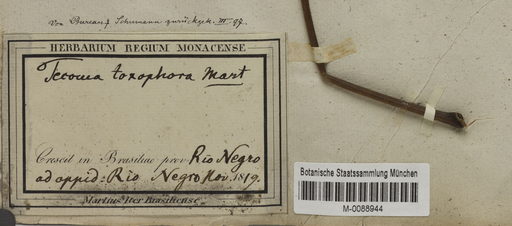 Von Bureau & Schumann zurückgek. III. 97.
HERBARIUM REGIUM MONACENSE
Tecoma toxophora Mart
Crescit in Brasiliae prov Rio Negro
ad oppid: Rio Negro Nov. 1819.
Martius Iter Brasiliense
Botanische Staatssammlung München
M-0088944